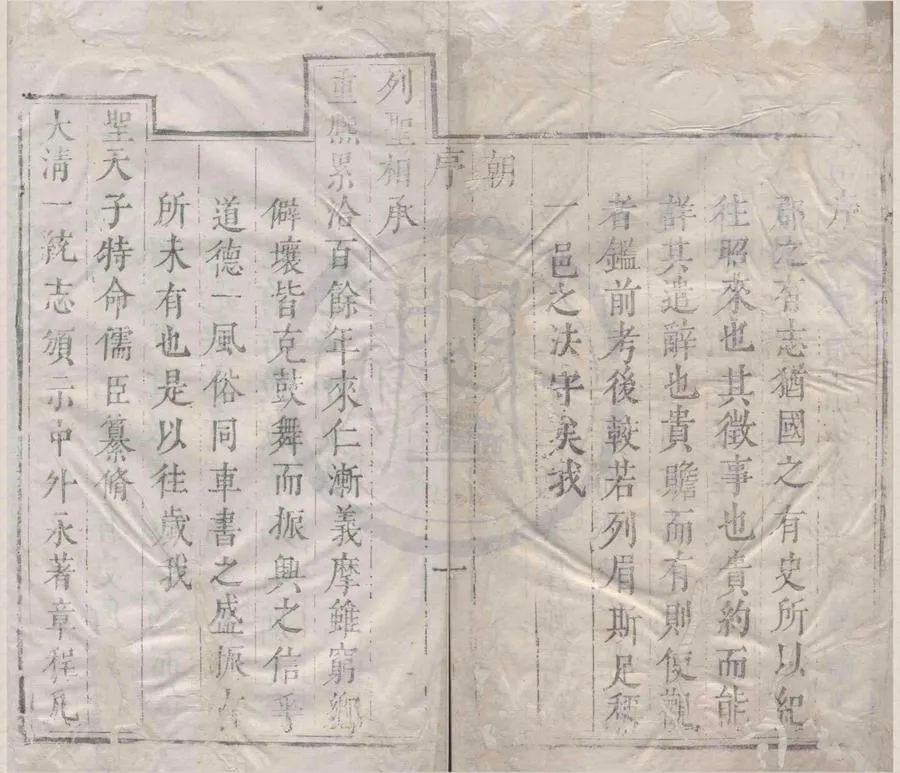 序
郡之有志猶國之有史所以紀
往昭來也其徵事也貴約而能
詳其遣辭也貴贍而有則使觀
者鑑前考後較若列眉斯足稱
一邑之法守矣我
朝
序
一
列聖相承
重熙累洽百餘年來仁漸義摩雖窮鄉
僻壤皆克鼓舞而振興之信乎
道德一風俗同車書之盛振古
所未有也是以往歲我
聖天子特命儒臣纂脩
大清一統志頒示中外永著章程凡